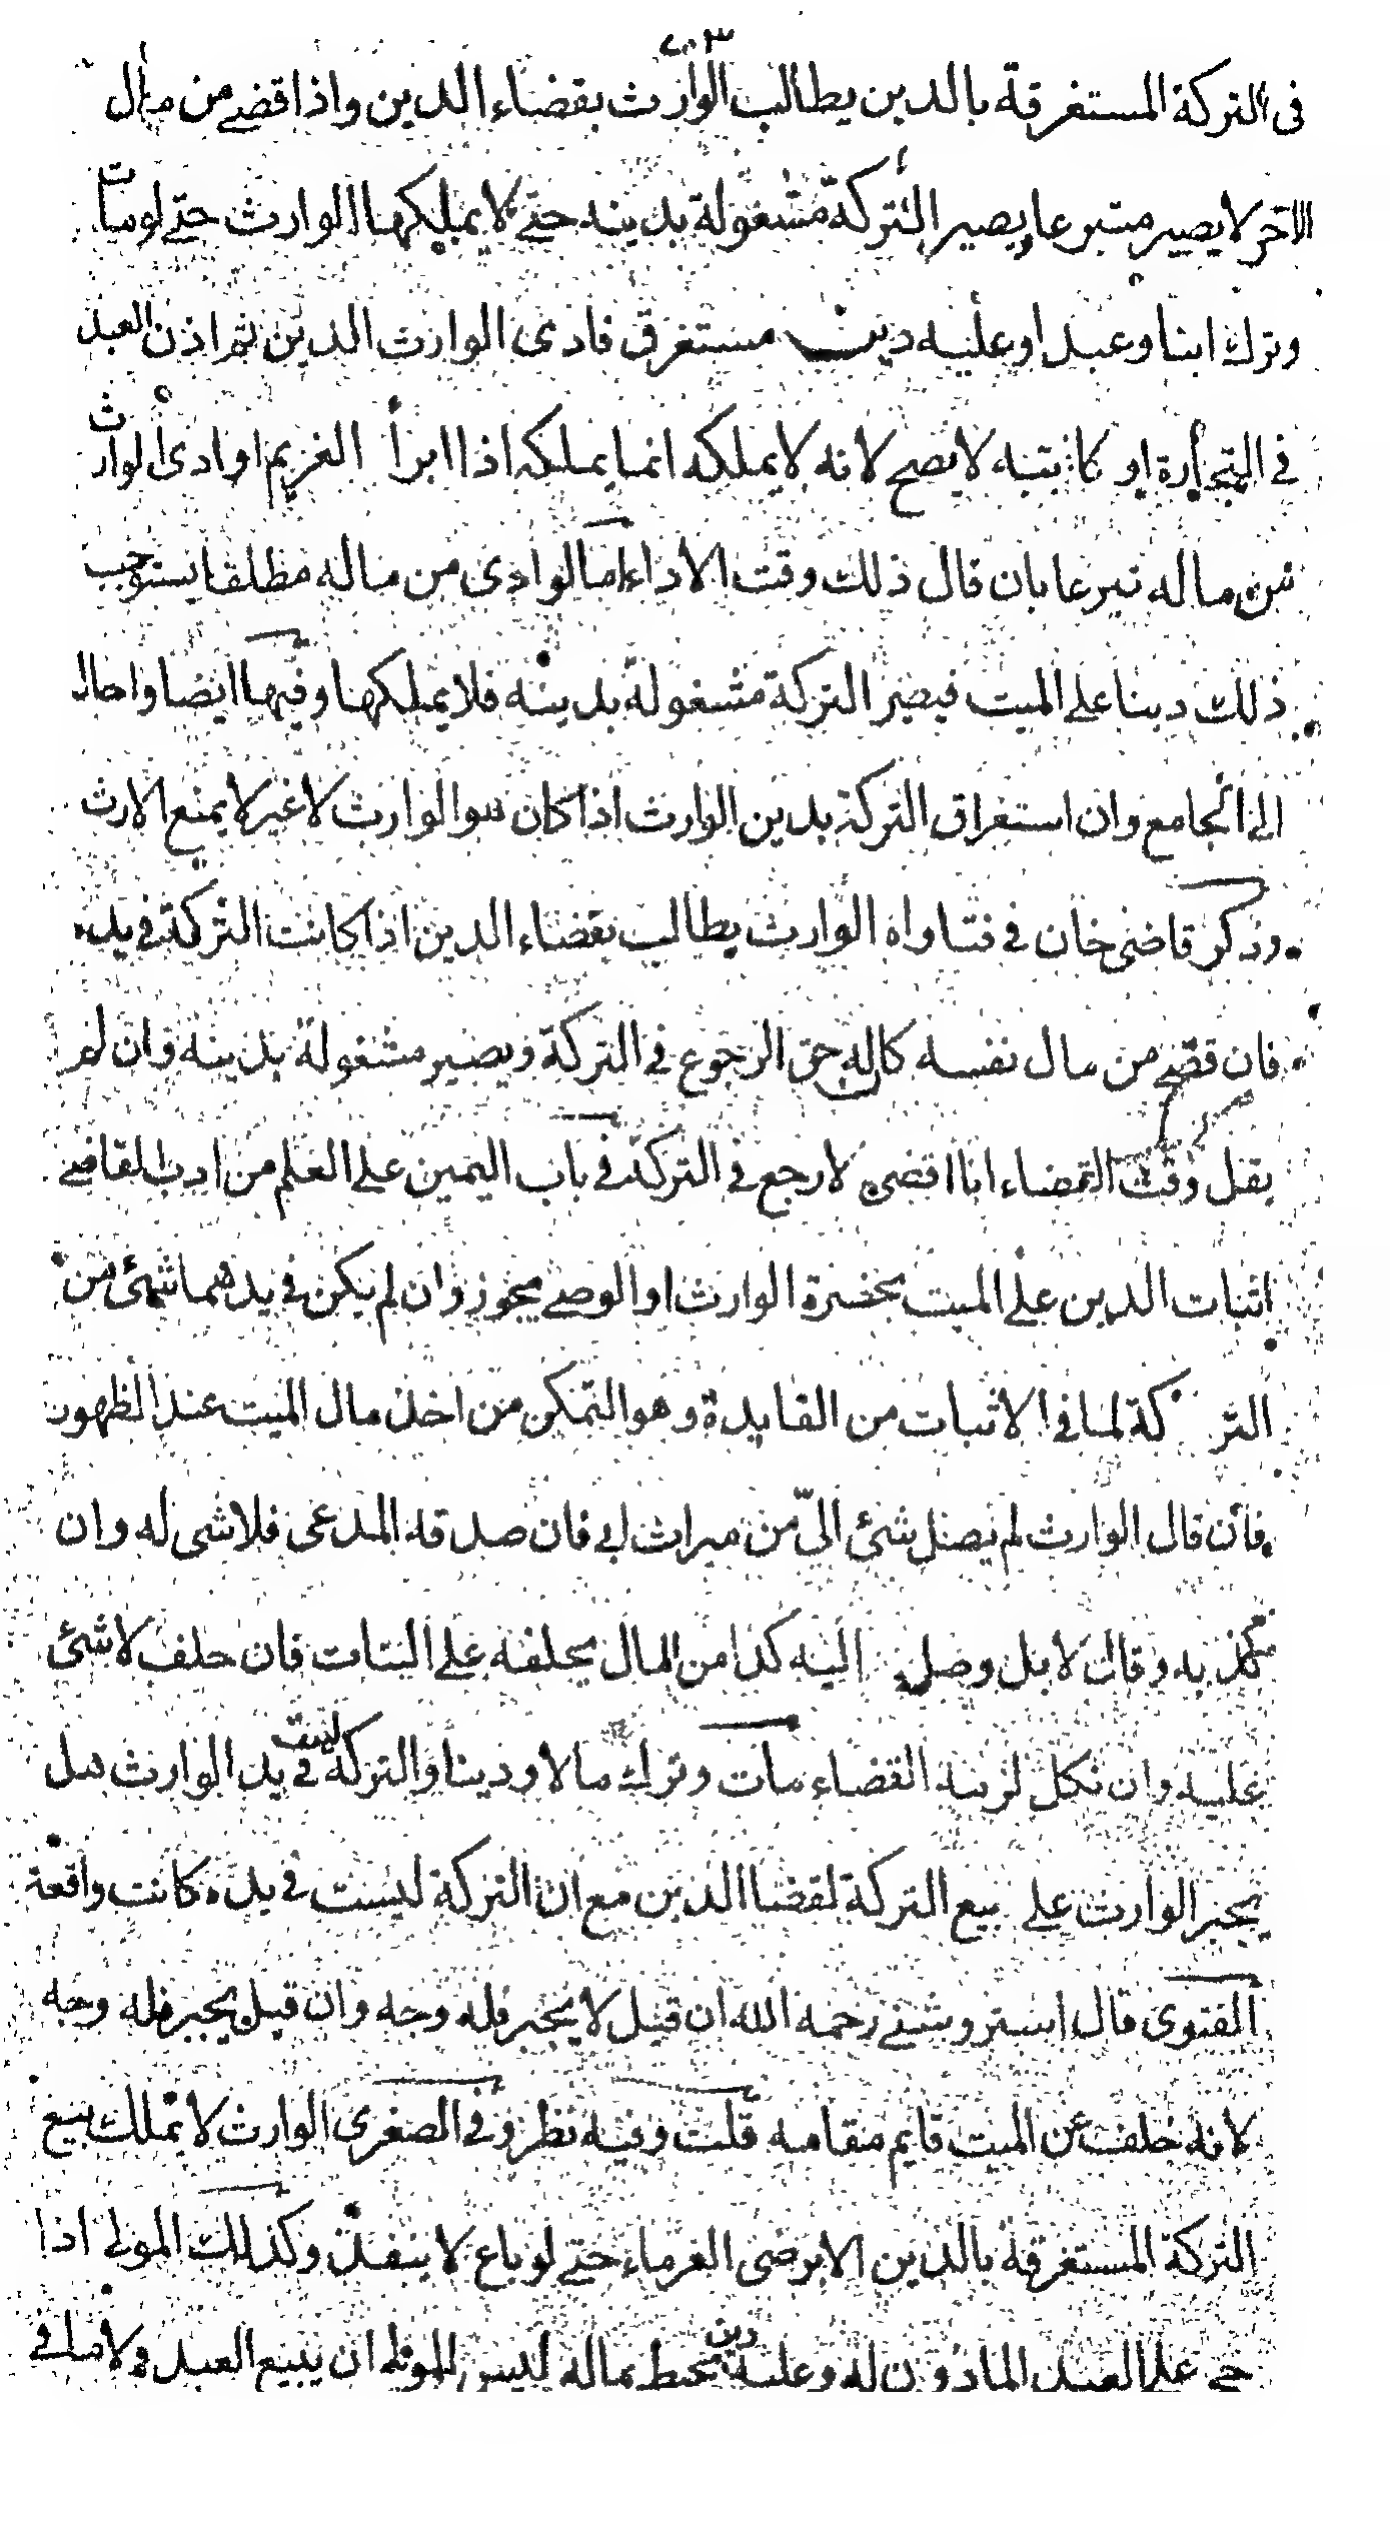 ٢٠٣
فى التركة المستغرقة بالدين يطالب الوارث بقضاء الدين واذا قضى من مال
الآخر لا يصير متبرعا ويصير التركة مشغولة بدينه حتى لا يملكها الوارث حتى لو مات
وترك ابنا وعبدا وعليه دين مستغرق فادى الوارث الدين ثم اذن العبد
فى التجارة او كاتبه لا يصح لانه لا يملكه انما يملكه اذا ابرأ الغريم او ادى الوارث
من ماله تبرعا بان قال ذلك وقت الاداء اما لو ادى من ماله مطلقا يستوجب
ذلك دينا على الميت فيصير التركة مشغولة بدينه فلا يملكها وفيها ايضا واحال
الى الجامع وان استغراق التركة بدين الوارث اذا كان هو الوارث لا غير لا يمنع الارث
وذكر قاضى خان فى فتاواه الوارث يطالب بقضاء الدين اذا كانت التركة فى يده
فان قضى من مال نفسه كان له حق الرجوع فى التركة ويصير مشغولة بدينه وان لم
يقل وقت القضاء انا اقضى لارجع فى التركة فى باب اليمين على العلم من ادب القاضى
اثبات الدين على الميت بحضرة الوارث او الوصى يجوز وان لم يكن فى يدهما شئ من
التركة لما فى الاثبات من الفايدة وهو التمكن من اخذ مال الميت عند الظهور
فان قال الوارث لم يصل شئ الىّ من ميراث ابى فان صدقه المدعى فلا شى له وان
كذبه وقال لا بل وصل اليه كذا من المال يحلفه على البتات فان حلف لا شئ
عليه وان نكل لزمه القضاء مات وترك مالا ودينا والتركة ليست فى يد الوارث هل
يجبر الوارث على بيع التركة لقضا الدين مع ان التركة ليست فى يده كانت واقعة
الفتوى قال استروشنى رحمه الله ان قيل لا يجبر فله وجه وان قيل يجبر فله وجه
لانه خلف عن الميت قايم مقامه قلت وفيه نظر وفى الصغرى الوارث لا يملك بيع
التركة المستغرقة بالدين الا برضى الغرماء حتى لو باع لا ينفذ وكذلك المولى اذا
حجر على العبد الماذون له وعليه دين يحيط بماله ليس للمولى ان يبيع العبد ولا ما فى